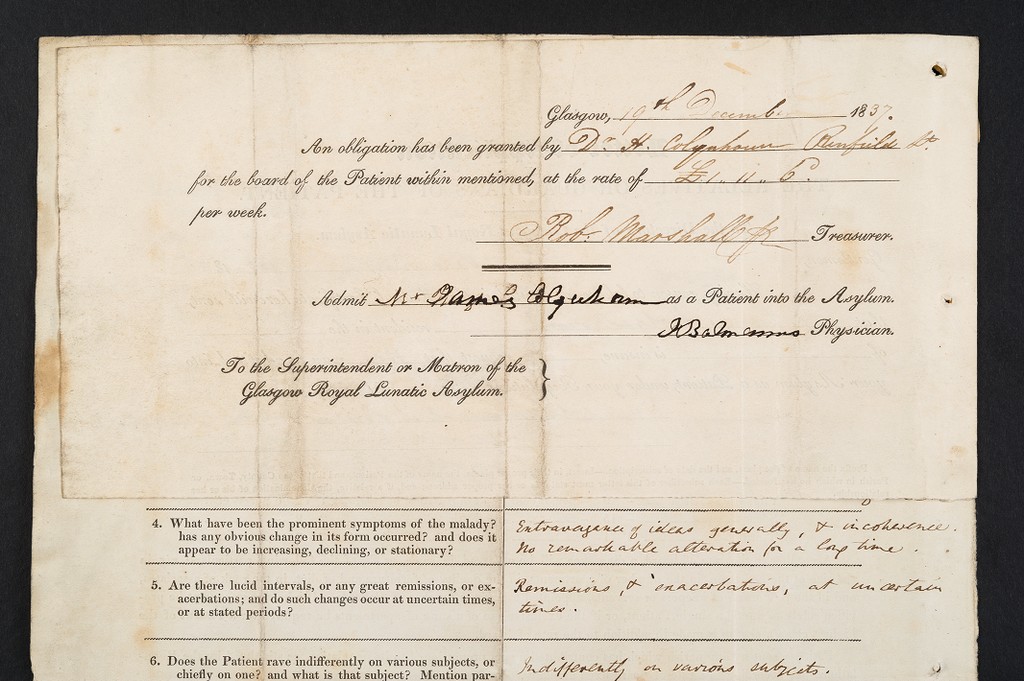 Glasgow, 19th December 1837.
An obligation has been granted by Dr H. Colquhoun Renfield St.
for the board of the Patient within mentioned, at the rate of £1. 11. 6.
per week.
Rob. Marshall Jr Treasurer.
Admit Mr James Colquhoun as a Patient into the Asylum.
J Balmanno Physician.
To the Superintendent or Matron of the
Glasgow Royal Lunatic Asylum.
4. What have been the prominent symptoms of the malady?
has any obvious change in its form occurred? and does it
appear to be increasing, declining, or stationary?
Extravagance of ideas generally, & incoherence.
No remarkable alteration for a long time.
5. Are there lucid intervals, or any great remissions, or ex-
acerbations; and do such changes occur at uncertain times,
or at stated periods?
Remissions, & exacerbations, at uncertain
times.
6. Does the Patient rave indifferently on various subjects, or
chiefly on one? and what is that subject? Mention par-
Indifferently on various subjects.